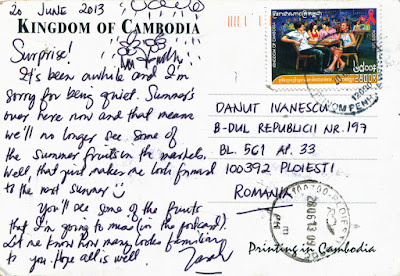 20 JUNE 2013
KINGDOM OF CAMBODIA
Surprise!
It's been awhile and I'm
sorry for being quiet. Summer's
over here now and that means
we'll no longer see some of
the summer fruits in the markets.
Well that just makes me look forward
to the next summer
You'll see some of the fruits
that I'm going to miss (in the postcard).
Let me know how many looks familiar
to you. Hope all is well
Sarah
DANUT IVANESCU
B-DUL REPUBLICII NR. 197
BL. 5C1 AP. 33
100392 PLOIESTI
ROMANIA
Printing in Cambodia
2800R